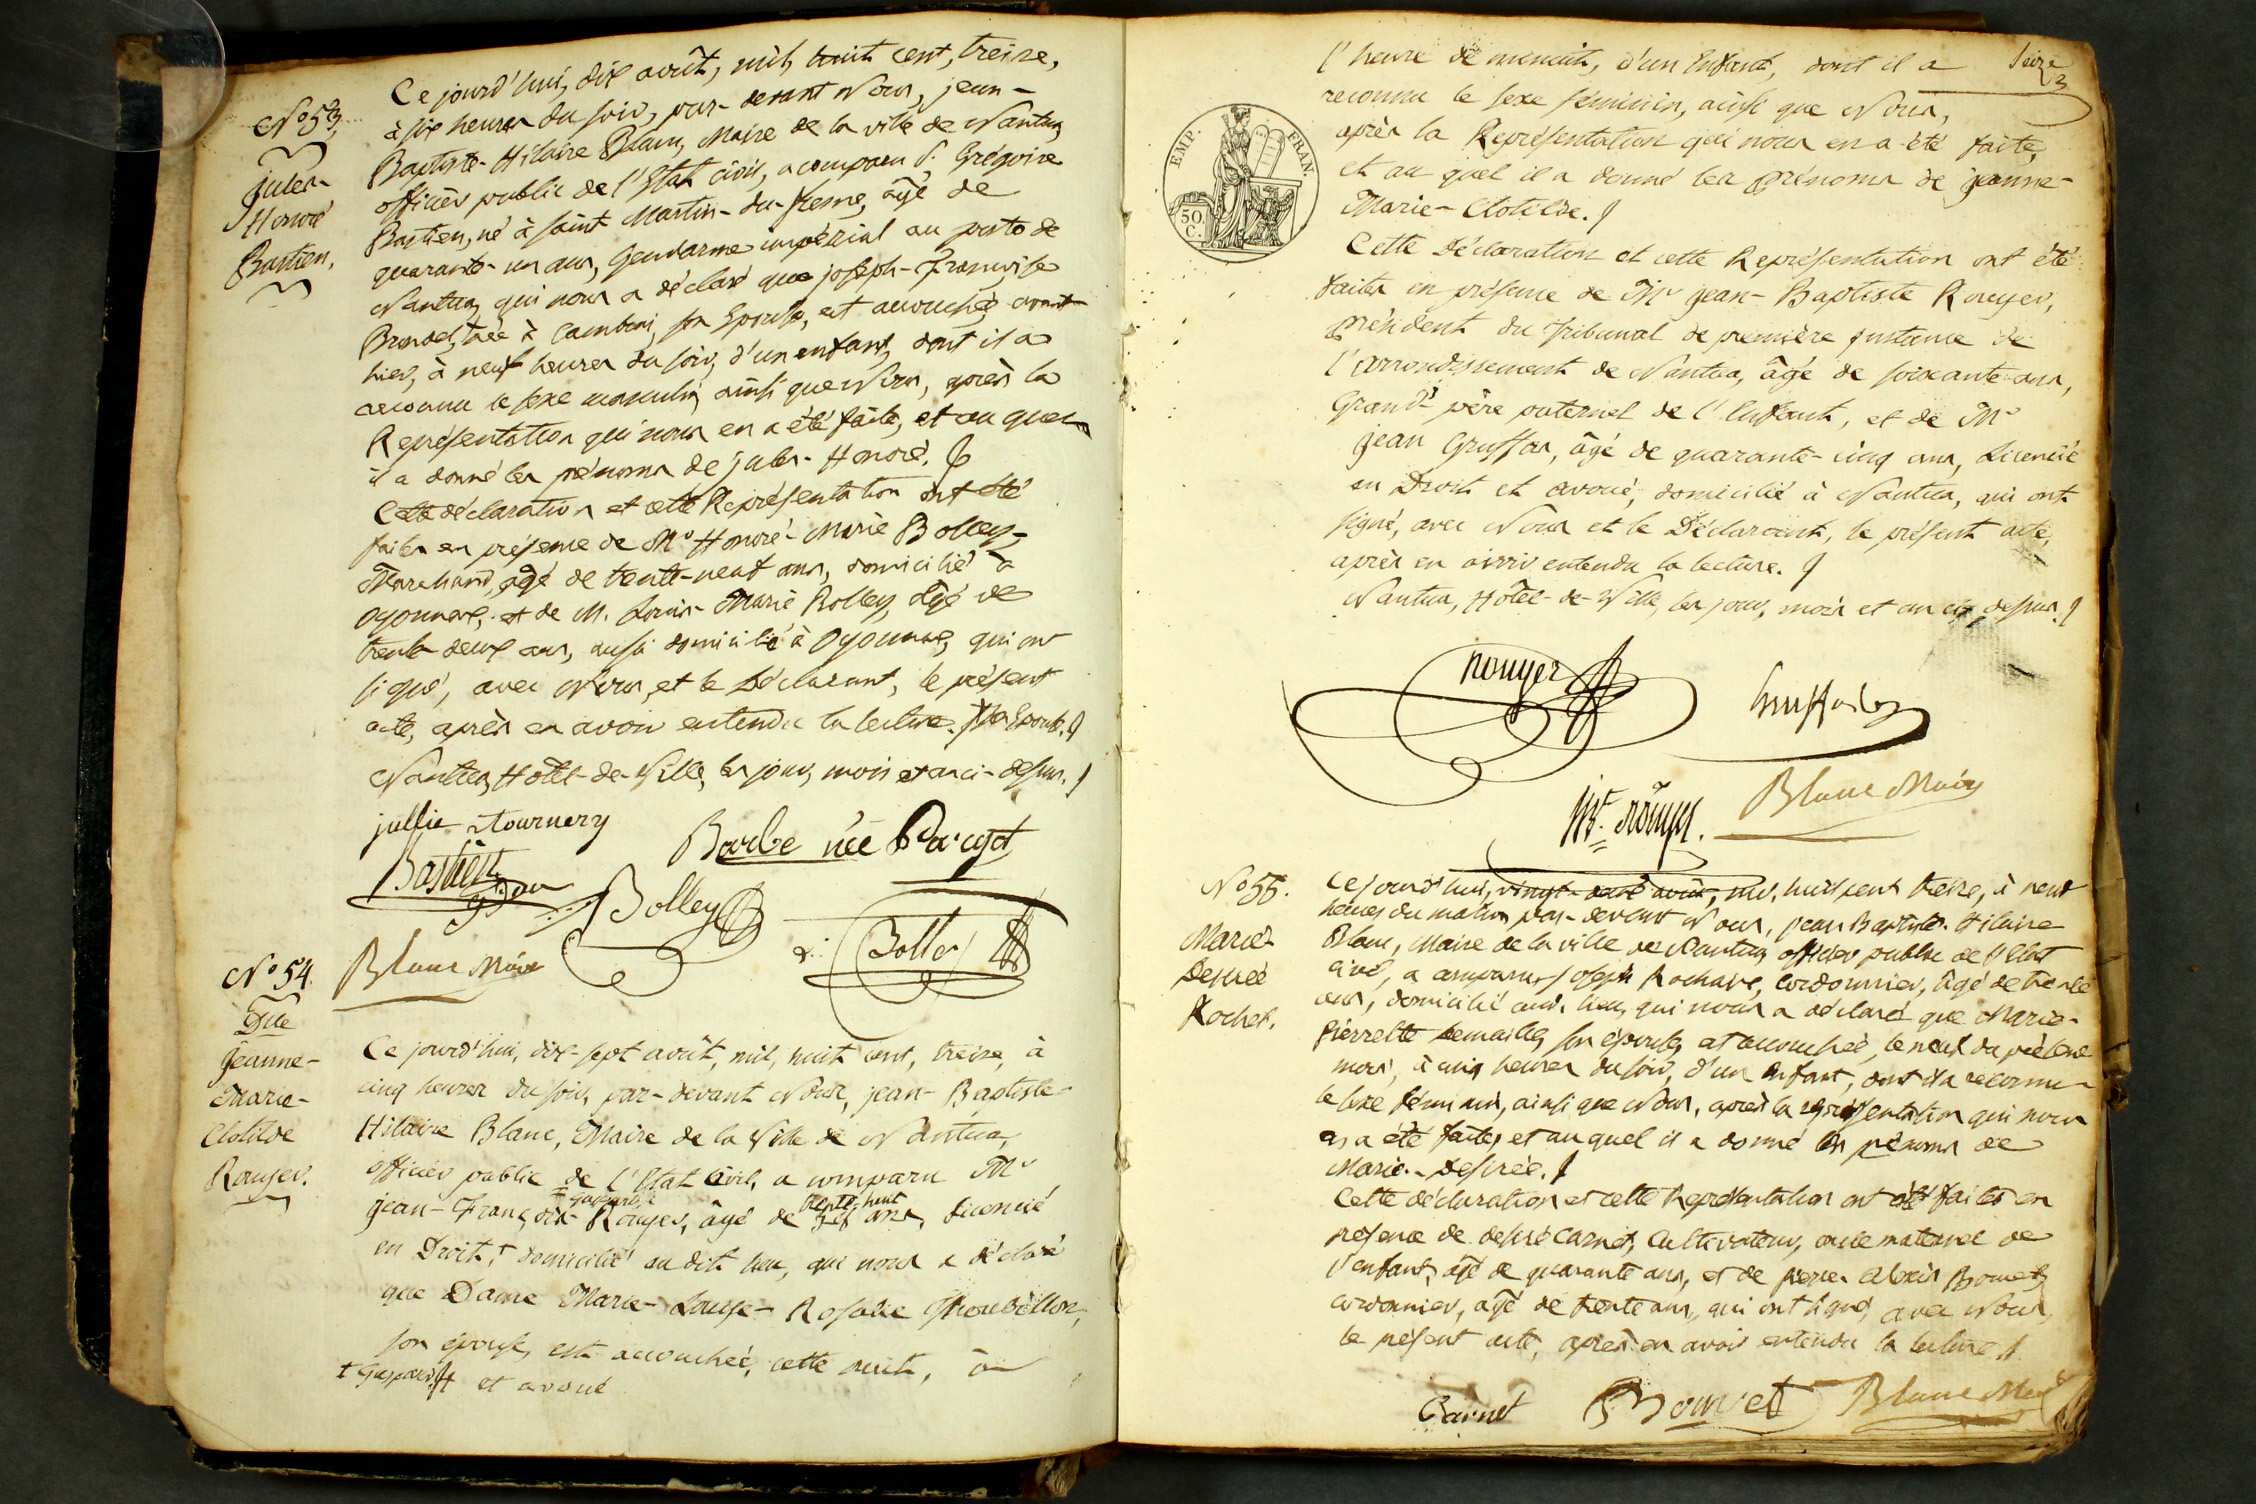 Ce jourd'hui, dix août, mil huit cent, treize,
No 53.
Jules-
Honoré
Bastien.
à six heures du soir, par-devant Nous, jean-
Baptiste-Hilaire Blanc, Maire de la ville de Nantua,
officier public de l'Etat civil, a comparu S. Grégoire
Bastien, né à Saint Martin-du-fresne, âgé de
quarante-un ans, Gendarme impérial au poste de
Nantua, qui nous a déclaré que joseph-Françoise
née à son Epouse, est accouchée avant
hier, à neuf heures du soir, d'un enfant, dont il a
reconnu le sexe masculin, ainsi que Nous, après la
Représentation qui nous en a été faite, et au quel
il a donné les prénoms de jules-Honoré.
Cette déclaration et cette Représentation ont été
faites en présence de Mr Honoré-Marie Bolley,
Marchand, âgé de trente-neuf ans, domicilié à
Oyonnax, et de M. Louis-Marie Bolley, âgé de
trente-deux ans, aussi domicilié à Oyonnax, qui ont
signé, avec Nous, et le Déclarant, le présent
acte, après en avoir entendu la lecture.
Nantua, Hôtel-de-Ville, les jour, mois et an ci-dessus.
jullie Tournery
Barbe née Parcyot
Bastien
Bolley
Bolley
Blanc Maire
No 54.
Dlle
Jeanne-
Marie-
Clotilde
Rouyer.
Ce jourd'hui, dix-sept août, mil, huit cent, treize, à
cinq heures du soir, par-devant Nous, jean-Baptiste-
Hilaire Blanc, Maire de la Ville de Nantua,
officier public de l'Etat Civil, a comparu Mr
gaspard trente huit
jean-François Rouyer, âgé de ans, Licencié
en Droit, † domicilié au dit lieu, qui nous a déclaré
que Dame Marie-Louise-Rosalie
son épouse, est accouchée, cette nuit, à
‡ Gaspard † et avoué
l'heure de minuit, d'un Enfant, dont il a
Seize
reconnu le sexe féminin, ainsi que Nous,
après la Représentation qui nous en a été faite,
et au quel il a donné les prénoms de jeanne-
Marie-Clotilde.
EMP. FRAN.
50 C.
Cette Déclaration et cette Représentation ont été
faites en présence de Mr jean-Baptiste Rouyer,
président du Tribunal de première Instance de
l'arrondissement de Nantua, âgé de soixante-ans,
Grand-père paternel de l'Enfant, et de Mr
jean Gruffas, âgé de quarante-cinq ans, Licencié
en Droit et avoué, domicilié à Nantua, qui ont
signé, avec Nous et le Déclarant, le présent acte,
après en avoir entendu la lecture.
Nantua, Hôtel-de-Ville, les jour, mois et an ci-dessus.
Rouyer
Blanc Maire
No 55.
Marie-
Desirée
Rochet.
Ce jourd'hui, vingt- août, mil, huit cent treize, à neuf
heures du matin par-devant Nous, Jean Baptiste-Hilaire
Blanc, Maire de la ville de Nantua officier public de l'Etat
civil, a comparu Joseph cordonnier, âgé de trente
ans, domicilié aud. lieu, qui nous a déclaré que Marie-
Pierrette son épouse, est accouchée, le neuf du présent
mois, à cinq heures du soir, d'un Enfant, dont il a reconnu
le sexe féminin, ainsi que Nous, après la représentation qui nous
en a été faite, et au quel il a donné les prénoms de
Marie-Desirée.
Cette déclaration et cette Représentation ont été faites en
présence de desiré Carnet, Cultivateur, oncle maternel de
l'enfant, âgé de quarante ans, et de pierre alexis Bouvet,
cordonnier, âgé de trente ans, qui ont signé, avec Nous,
le présent acte, après en avoir entendu la lecture.
Carnet
Bouvet
Blanc